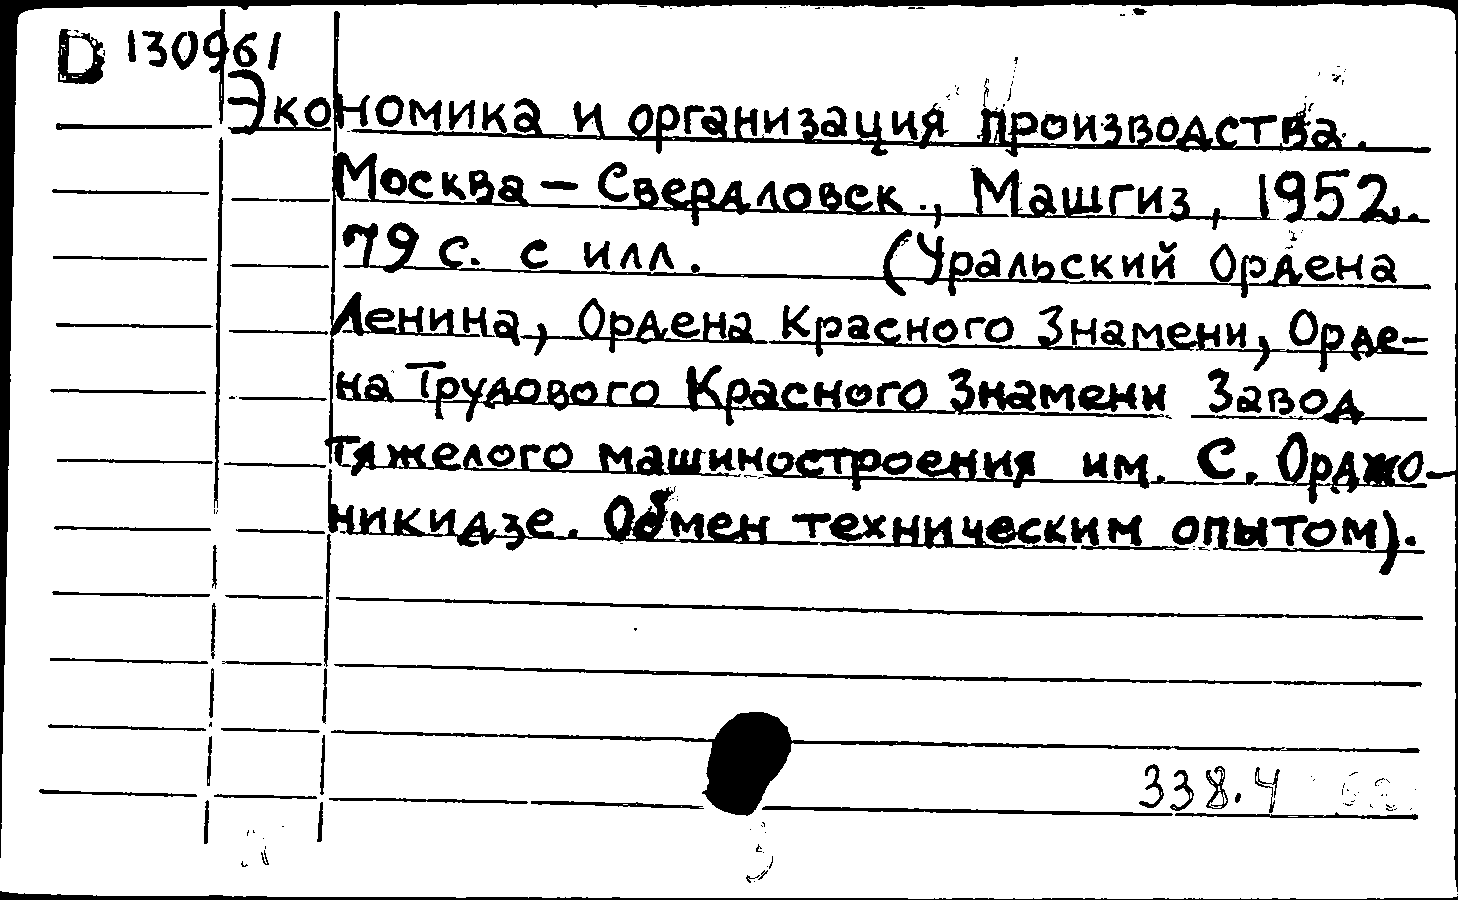 D 130961
Экономика и организация производства.
Москва – Свердловск., Машгиз, 1952.
79 с. с илл. (Уральский Ордена
Ленина, Ордена Красного Знамени, Орде-
на Трудового Красного Знамени Завод
тяжелого машиностроения им. С. Орджо-
никидзе. Обмен техническим опытом).
338.4